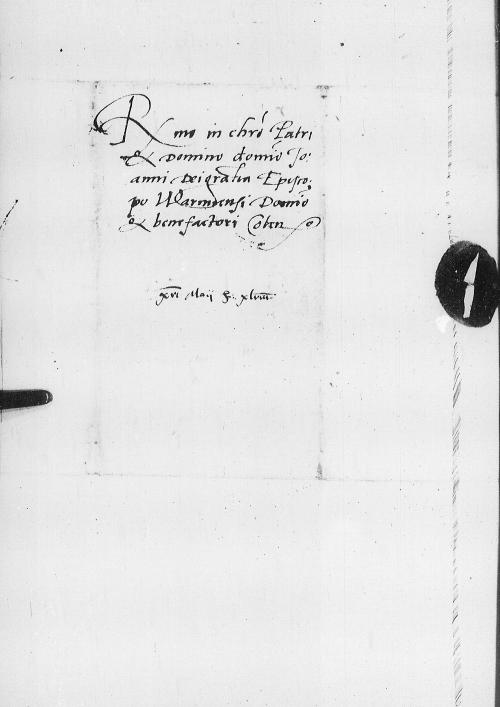 Rmo in chro Patri
& Domino domino Jo:
anni Dei gratia Episco:
po Warmiensi Domino
& benefactori
xvi Maij xlviii